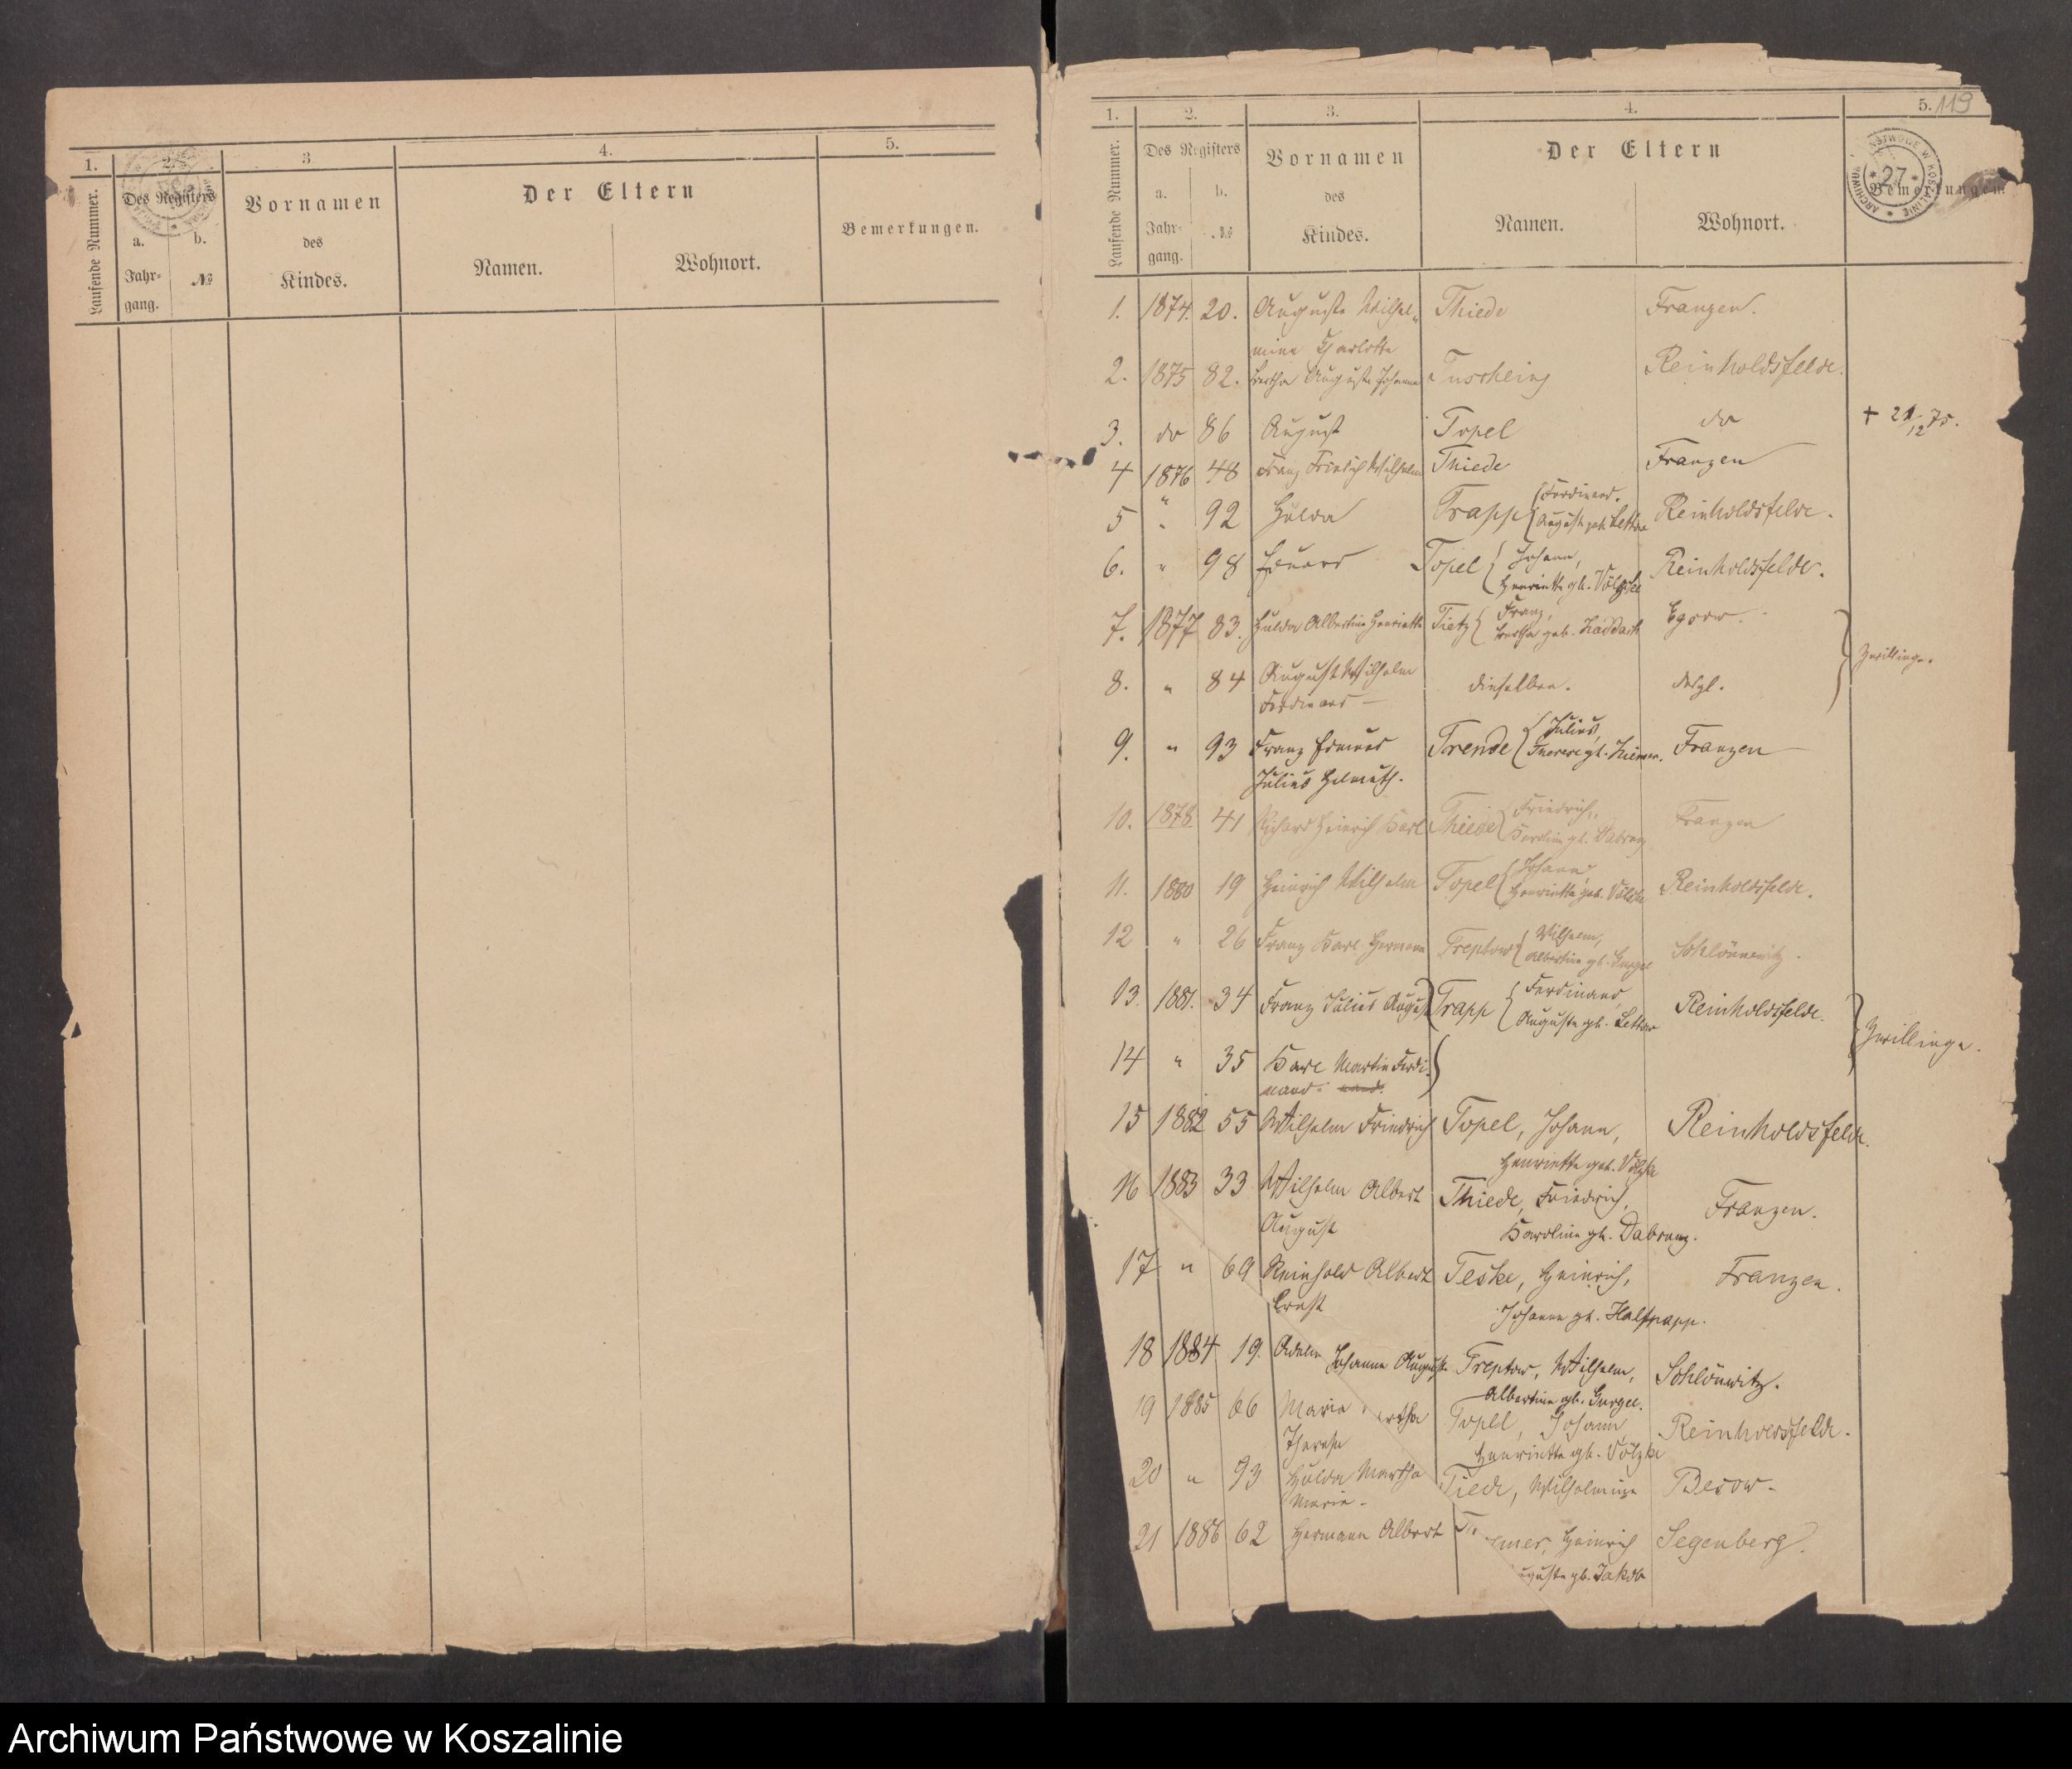 1. 2. 3 4. 5.
Laufende Nummer.
Des Registers
a. b.
Jahr-
gang. №
Vornamen
des
Kindes.
Der Eltern
Namen. Wohnort.
Bemerkungen.
1. 2. 3. 4. 5. 119
Laufende Nummer.
Des Registers
a. b.
Jahr-
gang. №
Vornamen
des
Kindes.
Der Eltern
Namen. Wohnort.
Bemerkungen.
ARCHIWUM PAŃSTWOWE W KOSZALINIE * 27 *
1. 1874. 20. Auguste Wilhel- Thiede Franzen.
mine Charlotte
2. 1875 82. Bertha Auguste Johanne Tuscheing Reinholdsfelde.
3. do 86 August Topel do + 21/12 75.
4 1876 48 Franz Friedrich Wilhelm Thiede Franzen
5 " 92 Hulda Trapp { Ferdinand.
Auguste geb. Lettow Reinholdsfelde.
6. " 98 Eduard Topel { Johann,
Henriette gb. Völzke Reinholdsfelde.
7. 1877 83. Hulda Albertine Henriette Tietz { Franz,
Bertha geb. Raddatz Egsow.
8. " 84 August Wilhelm
Ferdinand – dieselben. desgl. } Zwillinge.
9. " 93 Franz Eduard Trende { Julius,
Therese gb. Franzen
Julius Helmuth.
10. 1878 41 Richard Heinrich Karl Thiede { Friedrich,
Karoline gb. Dabrunz Franzen
11. 1880 19 Heinrich Wilhelm Topel { Johann,
Henriette geb. Völzke Reinholdsfelde.
12 " 26 Franz Karl Hermann Treptow { Wilhelm,
Albertine gb. Gurgel Schlönwitz.
13. 1881. 34 Franz Julius August Trapp { Ferdinand
Auguste gb. Lettow Reinholdsfelde.
14 " 35 Karl Martin Ferdi-
nand. nand. } Zwillinge.
15 1882 55 Wilhelm Friedrich Topel, Johann, Reinholdsfelde.
Henriette geb. Völzke
16 1883 33 Wilhelm Albert Thiede, Friedrich, Franzen.
August Karoline gb. Dabrunz.
17 " 69 Reinhold Albert Teske, Heinrich, Franzen.
Ernst Johanne gb. Halfpapp.
18 1884 19. Johanne Auguste Treptow, Wilhelm, Schlönwitz.
Albertine gb. Gurgel.
19 1885 66 Marie Topel, Johann, Reinholdsfelde.
Therese Henriette gb. Völzke
20 " 93 Hulda Martha Tiede, Wilhelmine Besow.
Marie –
21 1886 62 Hermann Albert Heinrich Segenberg.
gb. Jakob
Archiwum Państwowe w Koszalinie